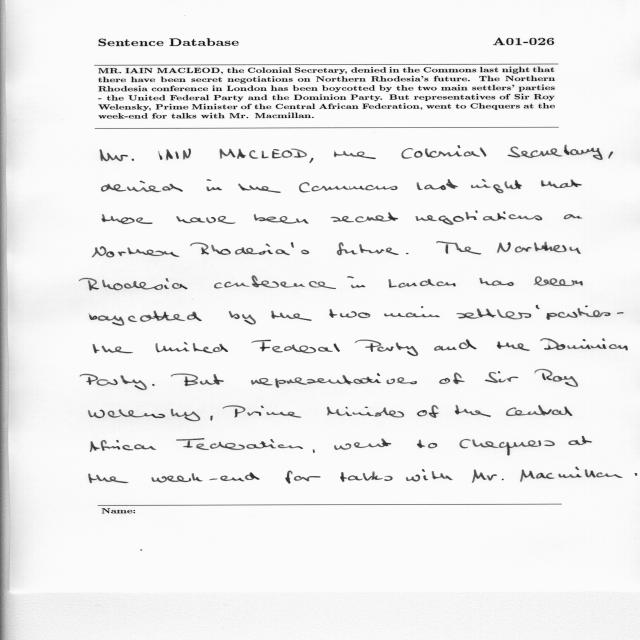 Sentence Database A01-026
MR. IAIN MACLEOD, the Colonial Secretary, denied in the Commons last night that
there have been secret negotiations on Northern Rhodesia's future. The Northern
Rhodesia conference in London has been boycotted by the two main settlers' parties
- the United Federal Party and the Dominion Party. But representatives of Sir Roy
Welensky, Prime Minister of the Central African Federation, went to Chequers at the
week-end for talks with Mr. Macmillan.
Mr. IAIN MACLEOD, the Colonial Secretary,
denied in the Commons last night that
there have been secret negotiations on
Northern Rhodesia's future. The Northern
Rhodesia conference in London has been
boycotted by the two main settlers' parties -
the United Federal Party and the Dominion
Party. But representatives of Sir Roy
Welensky, Prime Minister of the Central
African Federation, went to Chequers at
the week-end for talks with Mr. Macmillan.
Name: